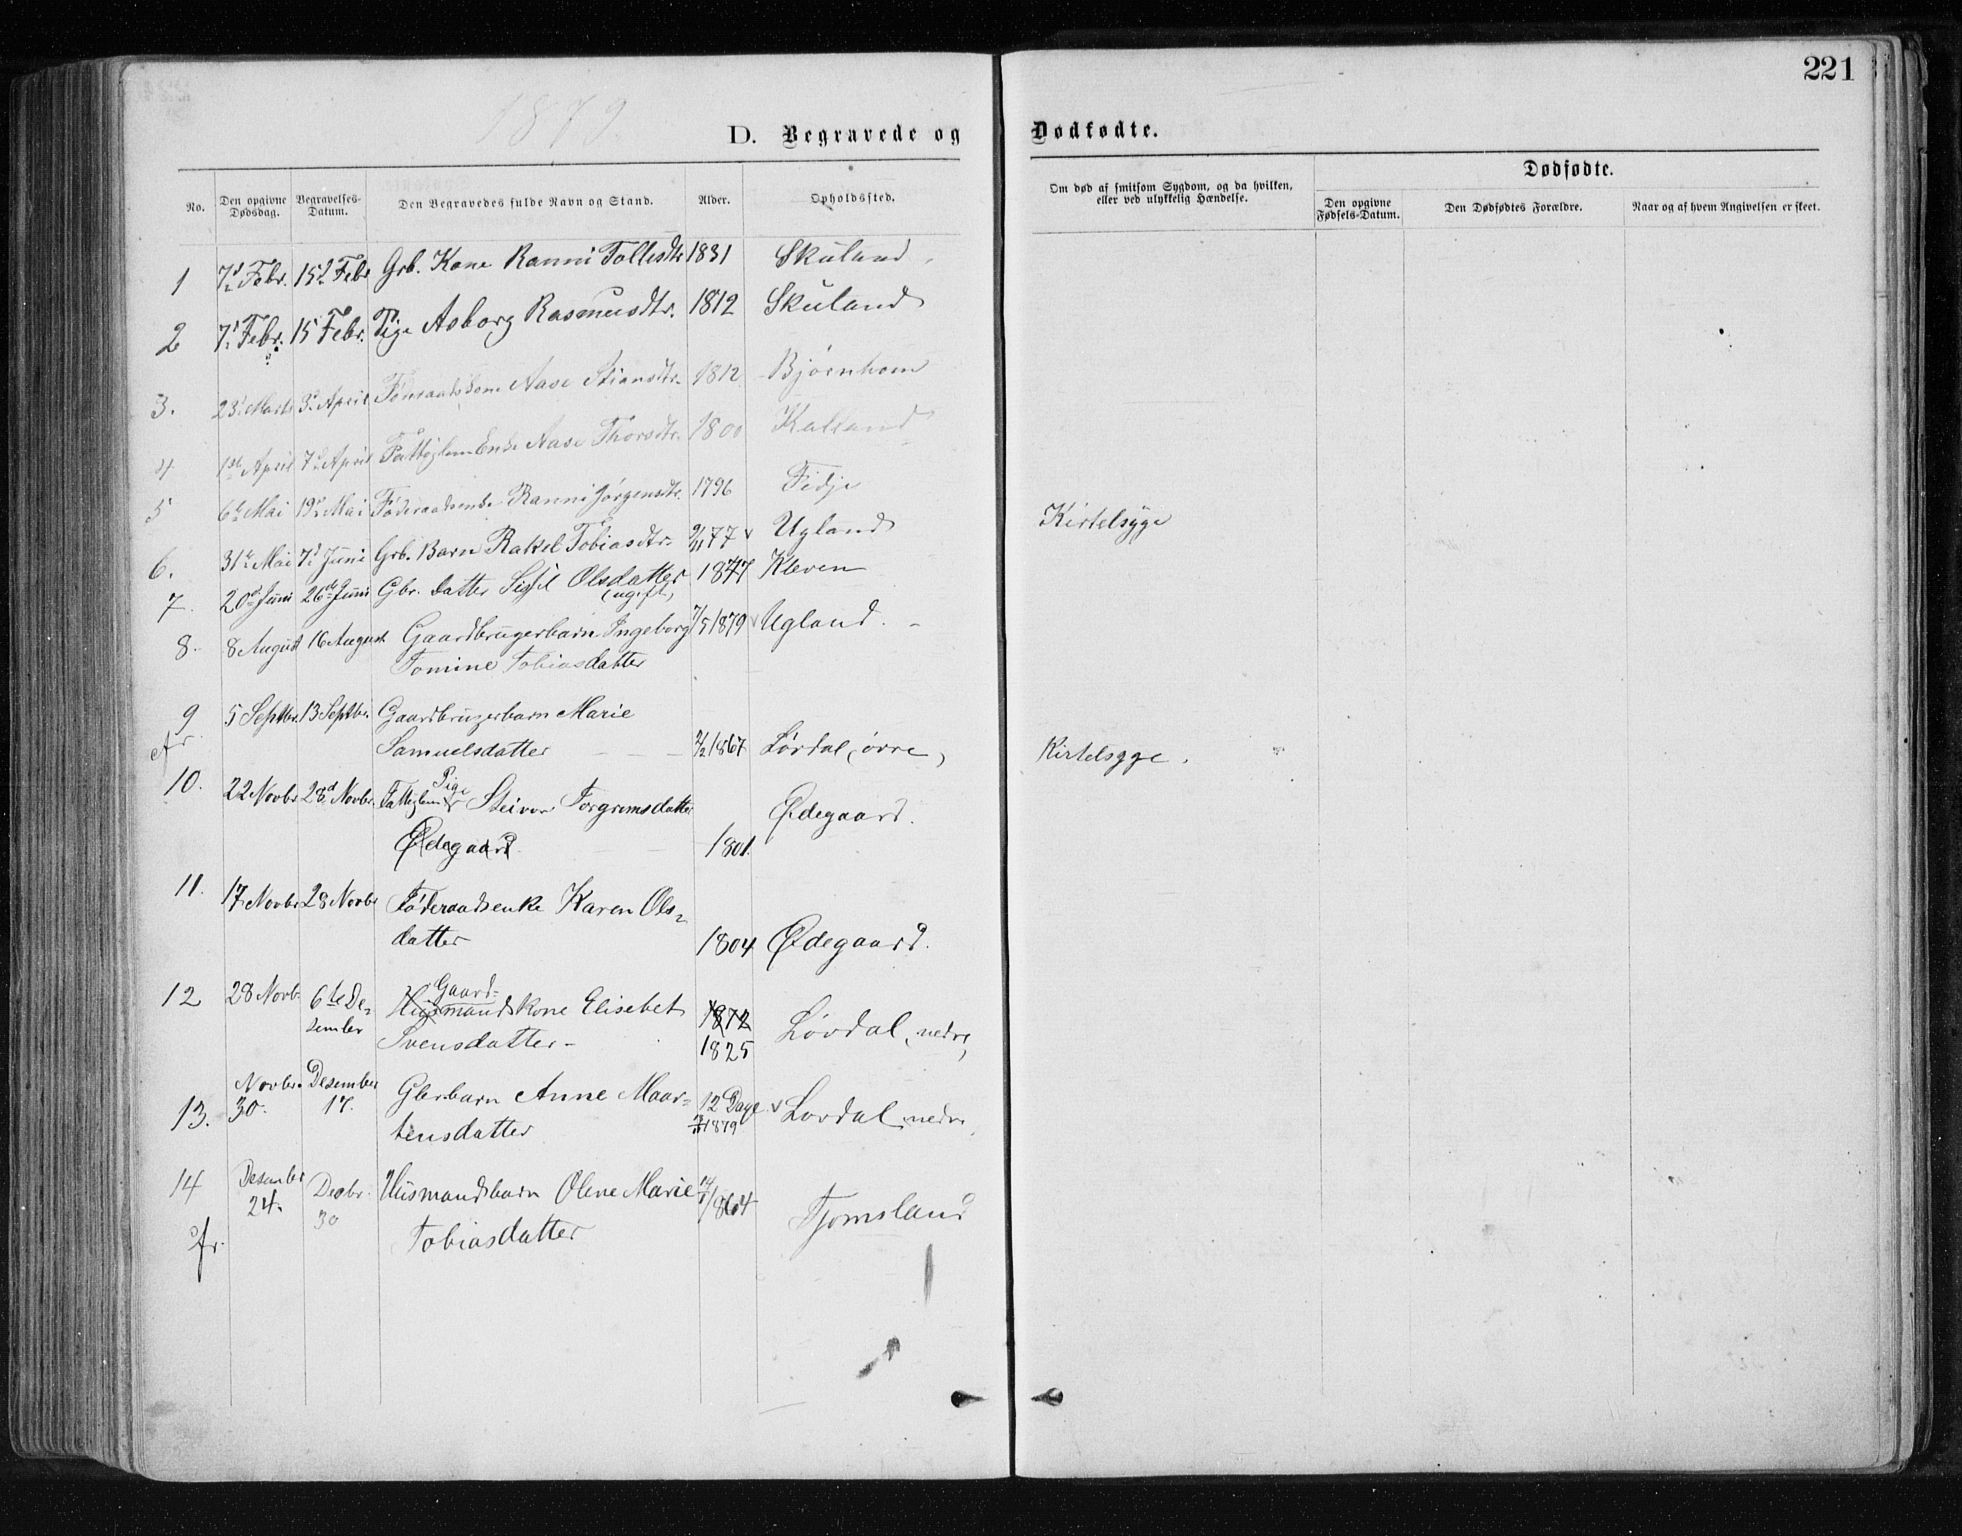 221
1879
D. Begravede og Dødfødte.
No. Den opgivne Dødsdag. Begravelses-Datum. Den Begravedes fulde Navn og Stand. Alder. Opholdssted. Om død af smitsom Sygdom, og da hvilken, eller ved ulykkelig Hændelse. Dødfødte.
Den opgivne Fødsels-Datum. Den Dødfødtes Forældre. Naar og af hvem Angivelsen er skeet.
1 7d Febr. 15d Febr Grb. Kone Ranni Tollesdtr 1831 Skuland
2 7d Febr. 15 Febr. Pige Asborg Rasmusdtr. 1812 Skuland
3. 23d Marts 3d April Aase Stiansdtr. 1812 Bjørnhom
4 1st April 7d April Aase Thorsdtr. 1800 Kalland
5 6te Mai 19d Mai Føderaadsenke Ranni Jørgensdtr. 1796 Fidje
6. 31te Mai 7d Juni Grb. Barn Rakel Tobiasdtr. 9/11 77 Ugland Kirtelsyge
7. 20d Juni 26de Juni Gbr. datter Sigfil Olsdatter 1847 Kleven
(ugift)
8. 8 August 16 August Gaardbrugerbarn Ingeborg 7/5 1879 Ugland.
Tomine Tobiasdatter
9 5 Septbr. 13 Septbr. Gaardbrugerbarn Marie
fr. Samuelsdatter 2/2 1867 Løvdal, øvre, Kirtelsyge.
10. 22 Novbr 28d Novbr. Fattiglem Pige Steivor Torgrimsdatter Ødegaard.
Ødegaard 1801.
11. 17 Novbr 28 Novbr Føderaadsenke Karen Ols-
datter 1804 Ødegaard.
12 28 Novb. 6te De- Gaard-
sember Husmandskone Elisebet 1872 Løvdal, nedre,
Svensdatter- 1825
13. Novbr. 30. Desember 17. Gbr.barn Anne Maar- 12 Dage Løvdal, nedre,
tensdatter 1879
14 Desember 24. Desbr. 30 Husmandsbarn Olene Marie 1864 Tjomsland
fr. Tobiasdatter